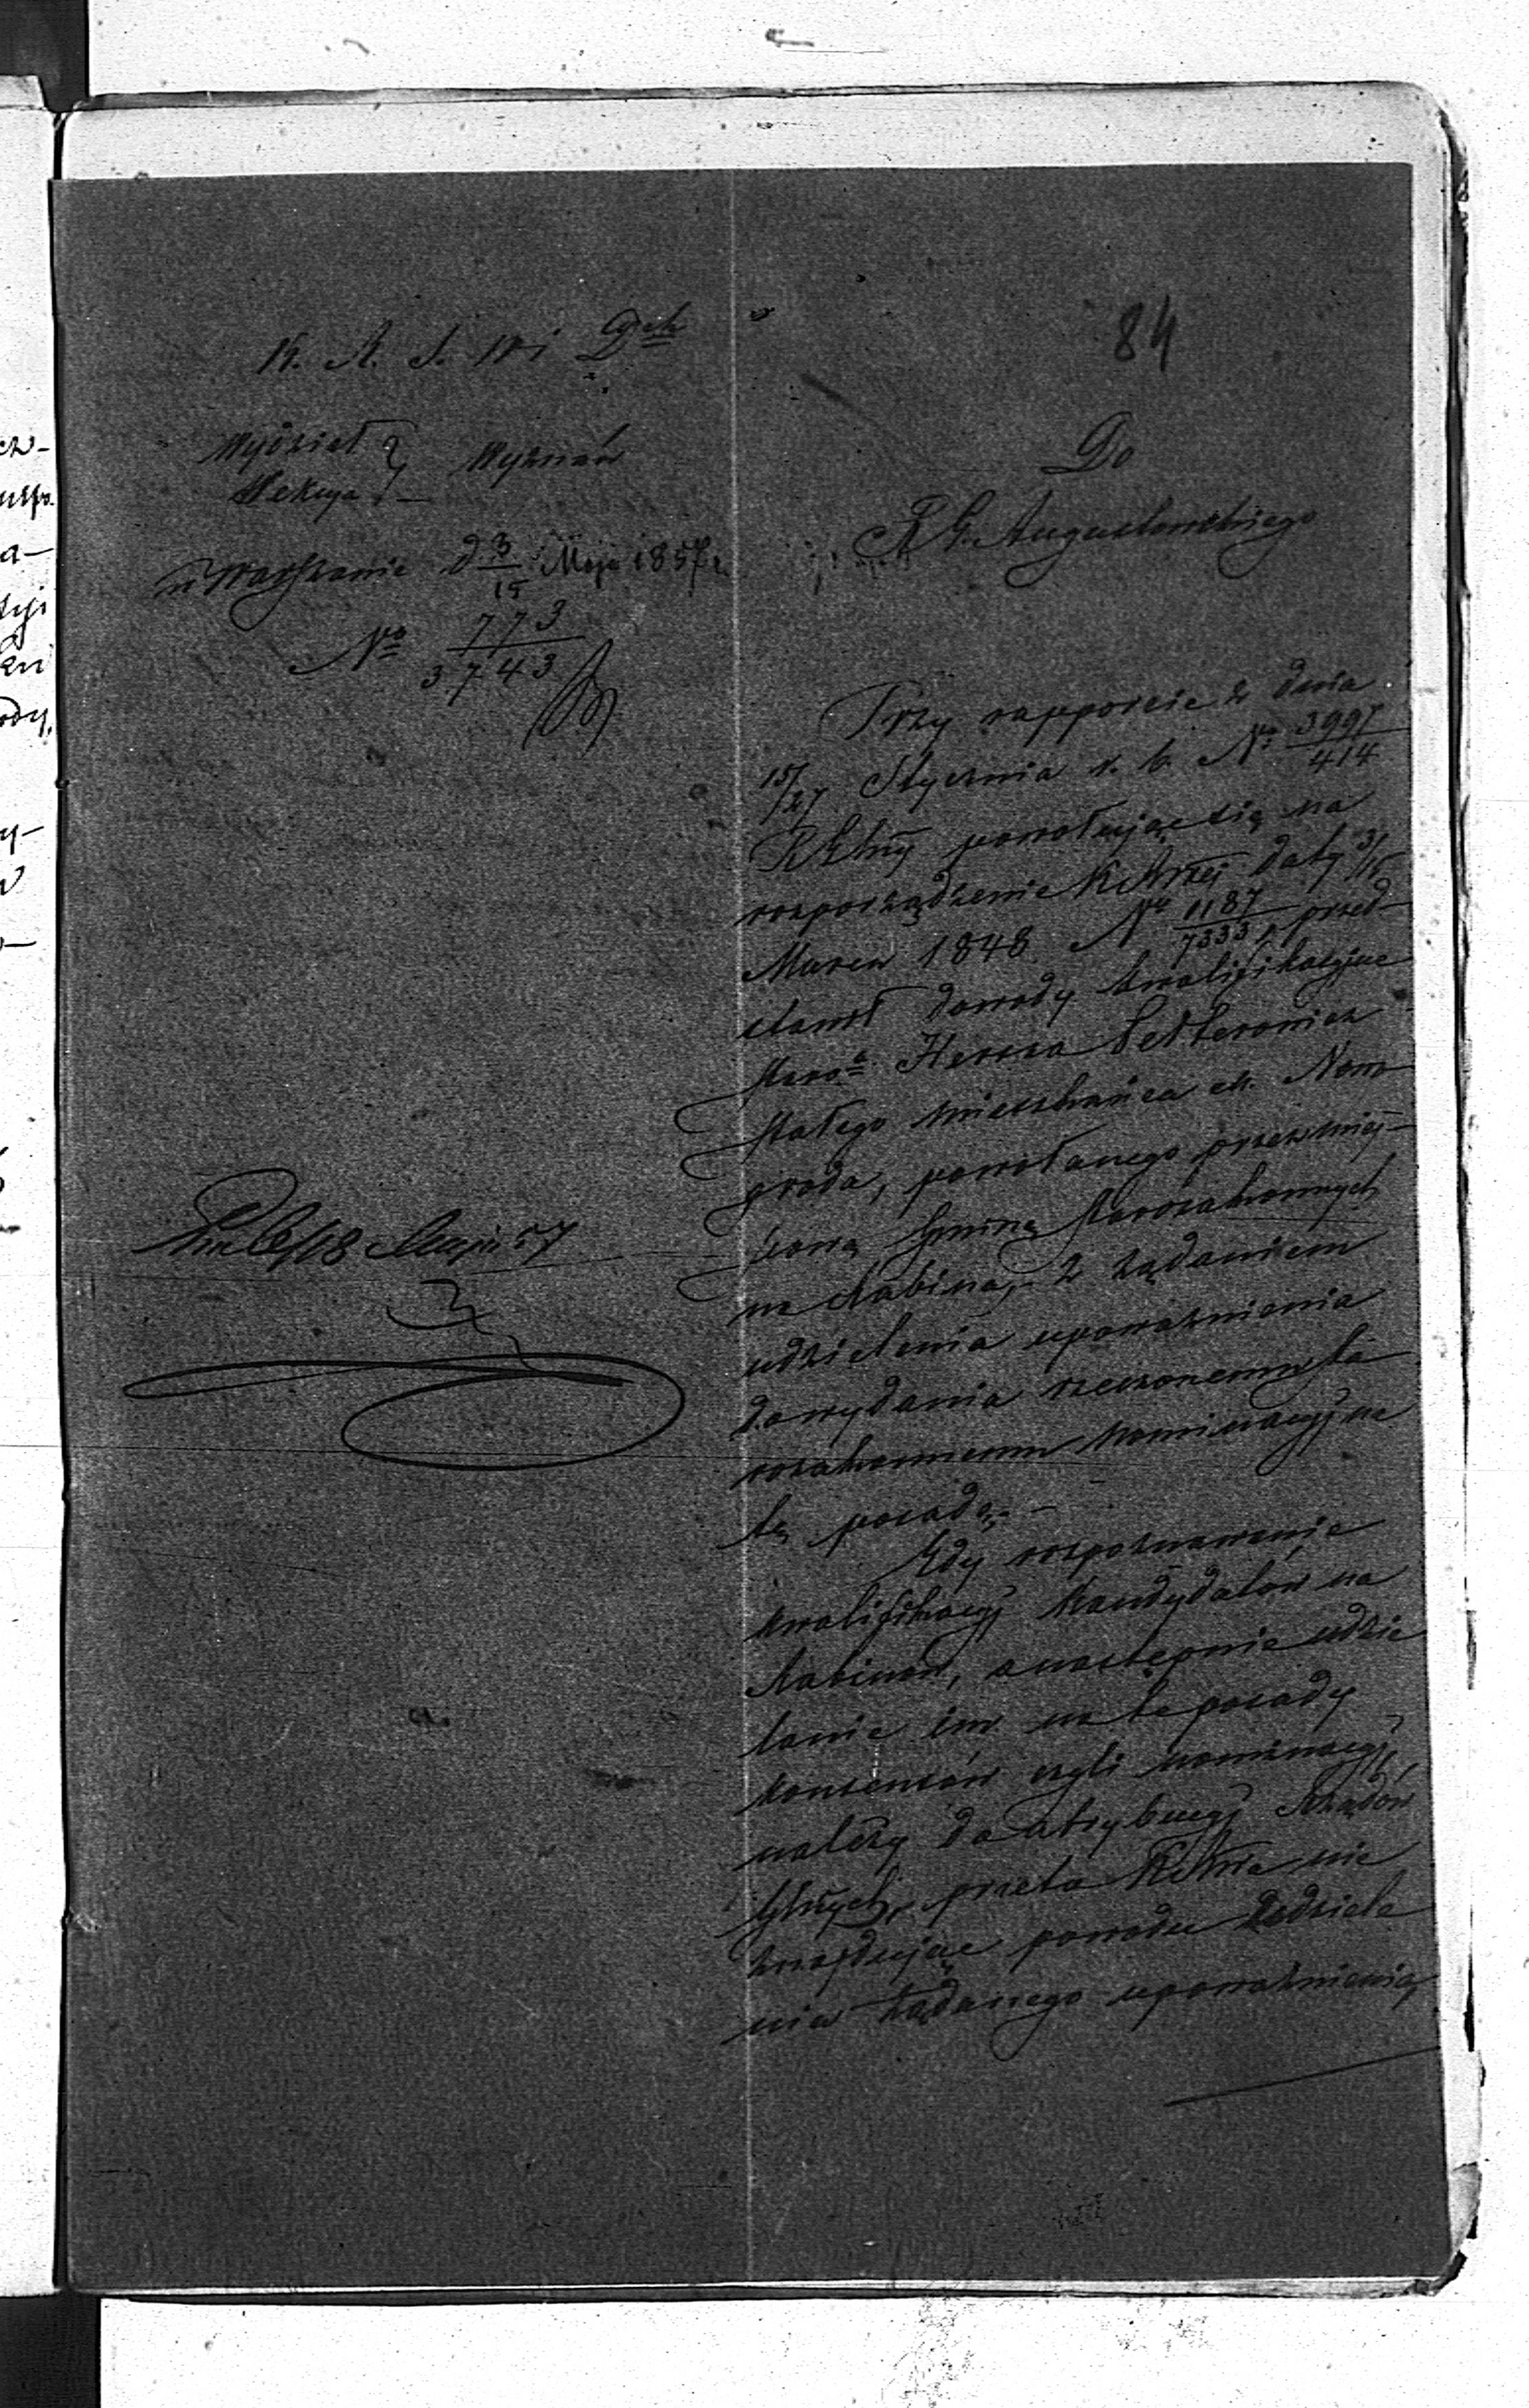 84
K. R. S. W i Dch
Wydział
Sekcya
Wyznań
w Warszawie d 3/15 Maja 1857 r.
No 773/3743
Do
R. G. Augustowskiego
Przy rapporcie z dnia
15/27 Stycznia r. b. No 3997/414
powołując się na
rozporządzenie daty 3/15
Marca 1848 No 1187/7333, przed-
stawił dowody kwalifikacyjne
Hersza
stałego mieszkańca m. Nowo-
groda, powołanego przez miej-
scową Gminę Starozakonnych
na Rabina, z żądaniem
udzielenia upoważnienia
do wydania rzeczonemu sta
rozakonnemu nominacyi na
tę posadę.-
Gdy rozpoznawanie
kwalifikacyj kandydatów na
Rabinów, a następnie udzie
lanie im na te posady
konsensów czyli nominacyj,
należy do atrybucyj Rządów
Gbnych, przeto nie
znajdując powodu udziele
nia żądanego upoważnienia,
18 Maja 57